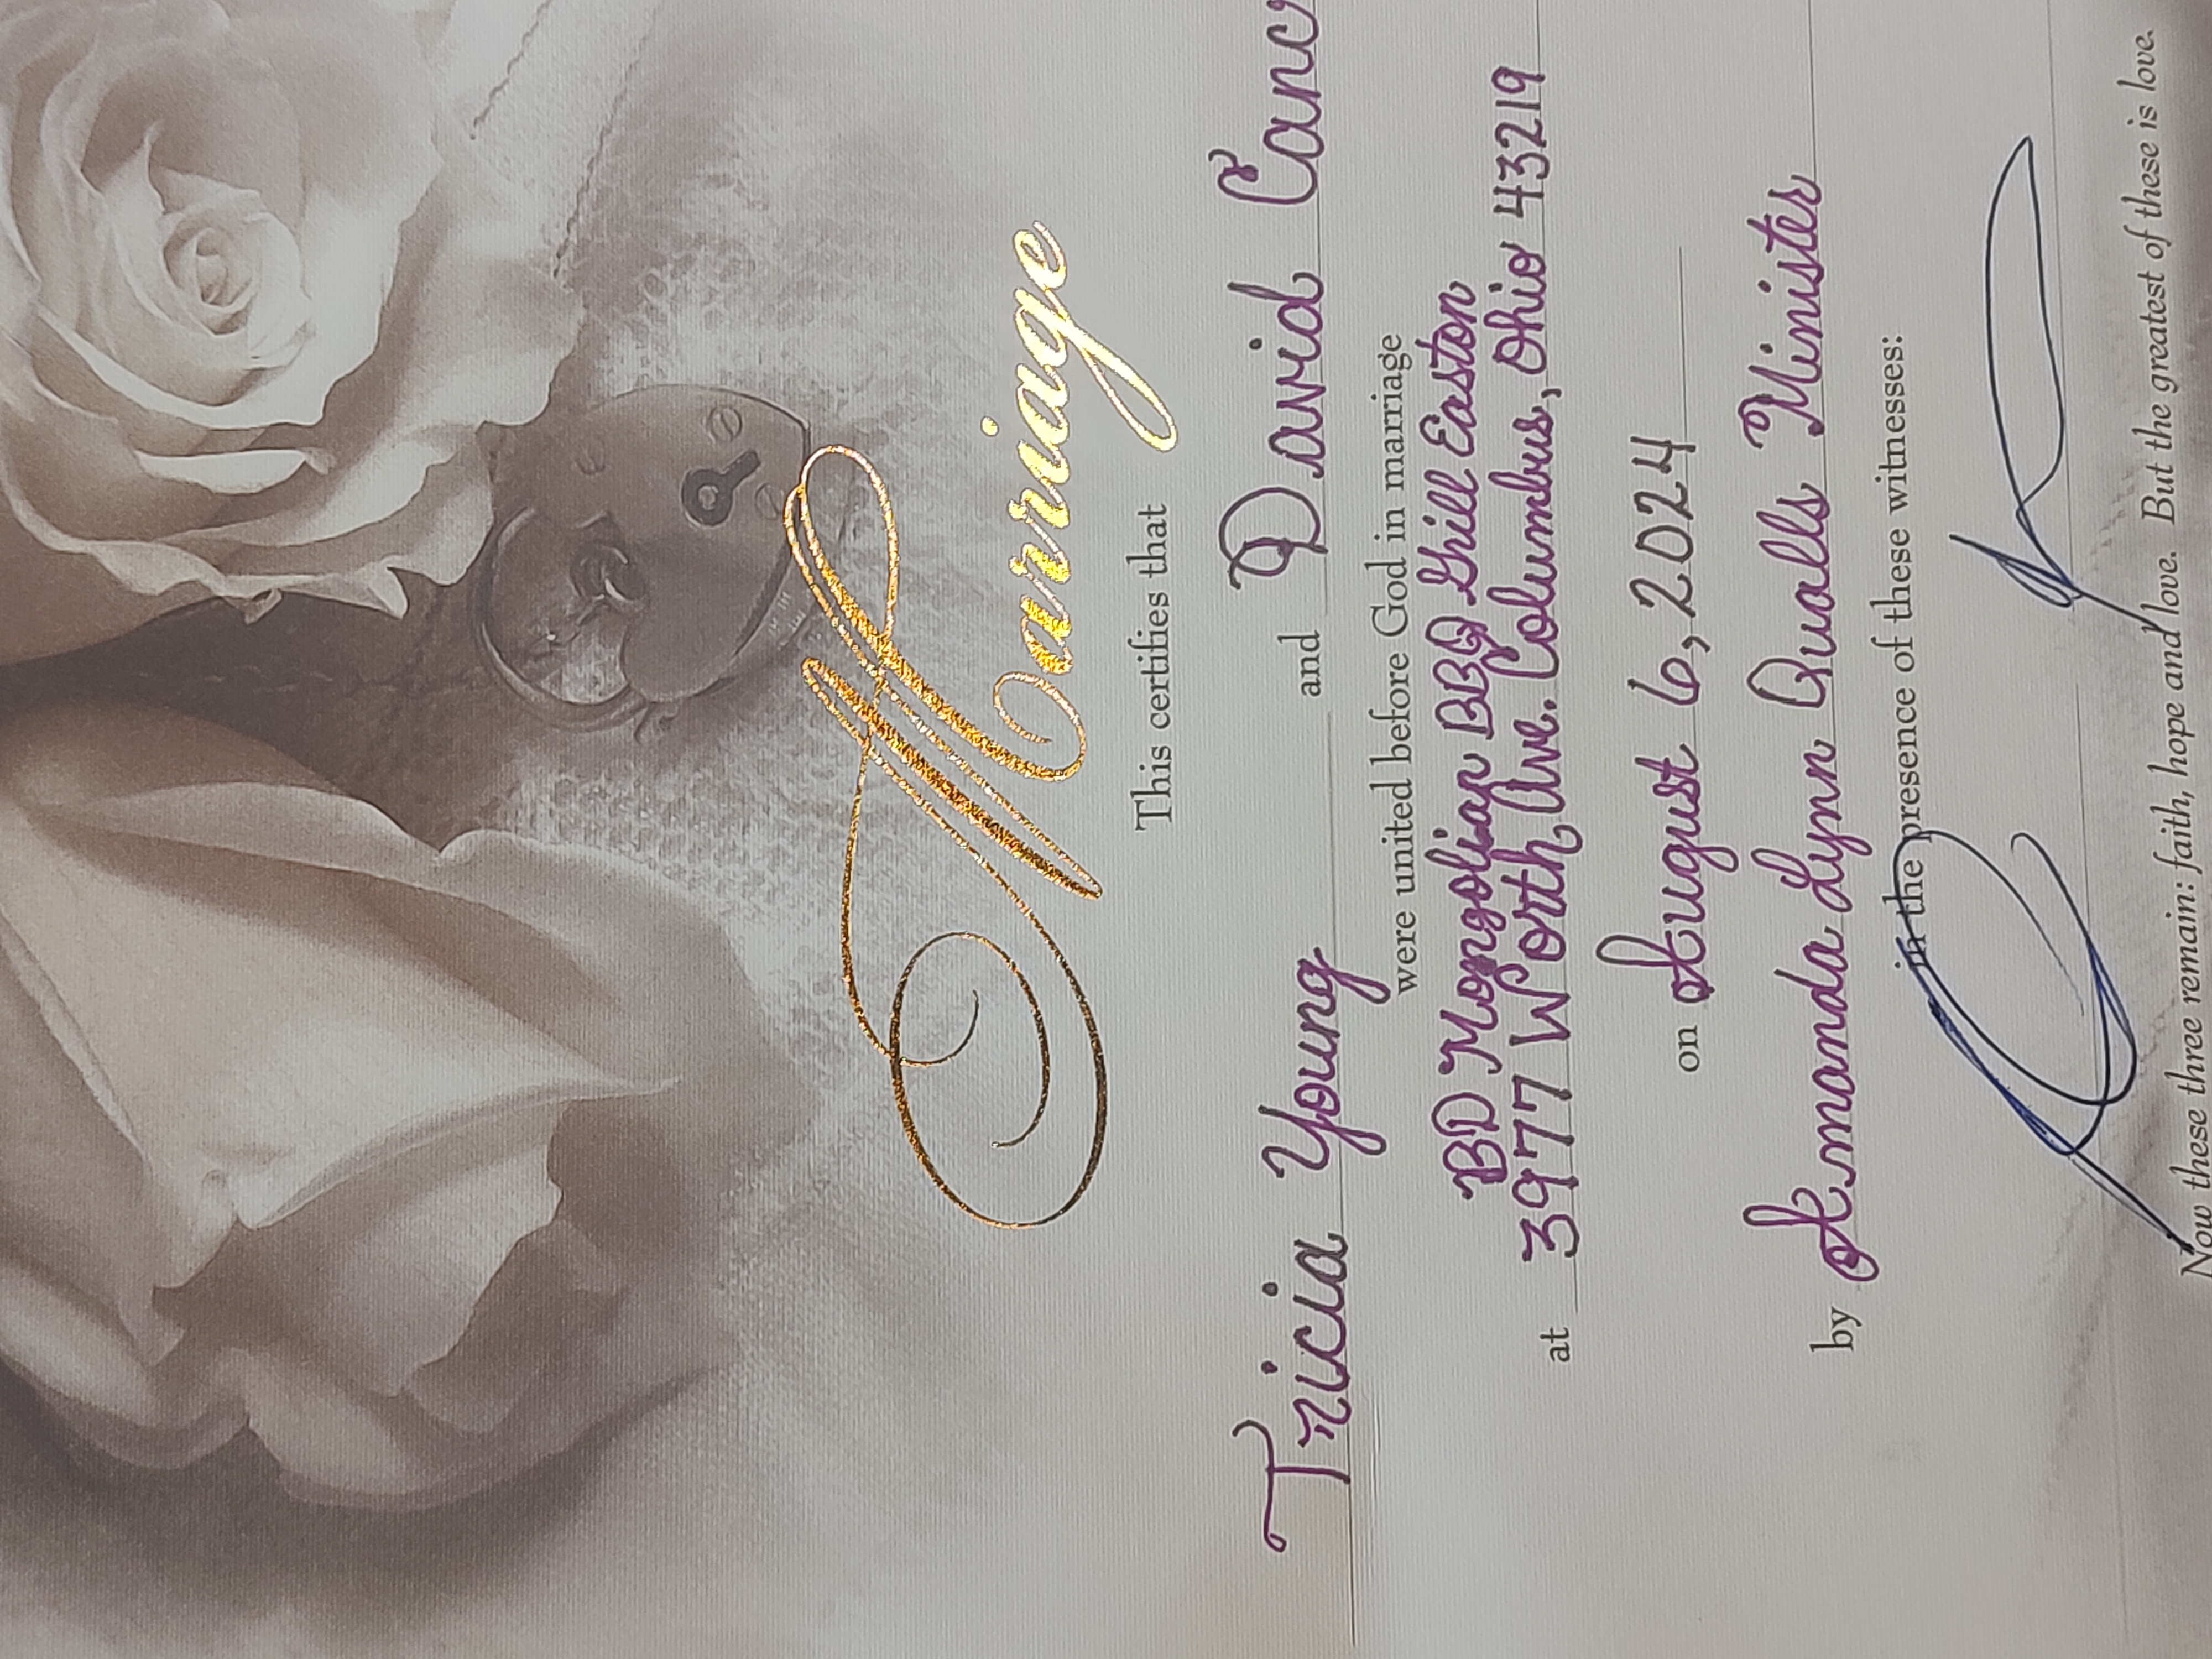 Marriage
This certifies that
Tricia Young and David
were united before God in marriage
BD Mongolian BBQ Grill Easton
at 3977 Worth Ave. Columbus, Ohio 43219
on August 6, 2024
by Amanda Lynn Qualls Minister
in the presence of these witnesses:
Now these three remain: faith, hope and love. But the greatest of these is love.